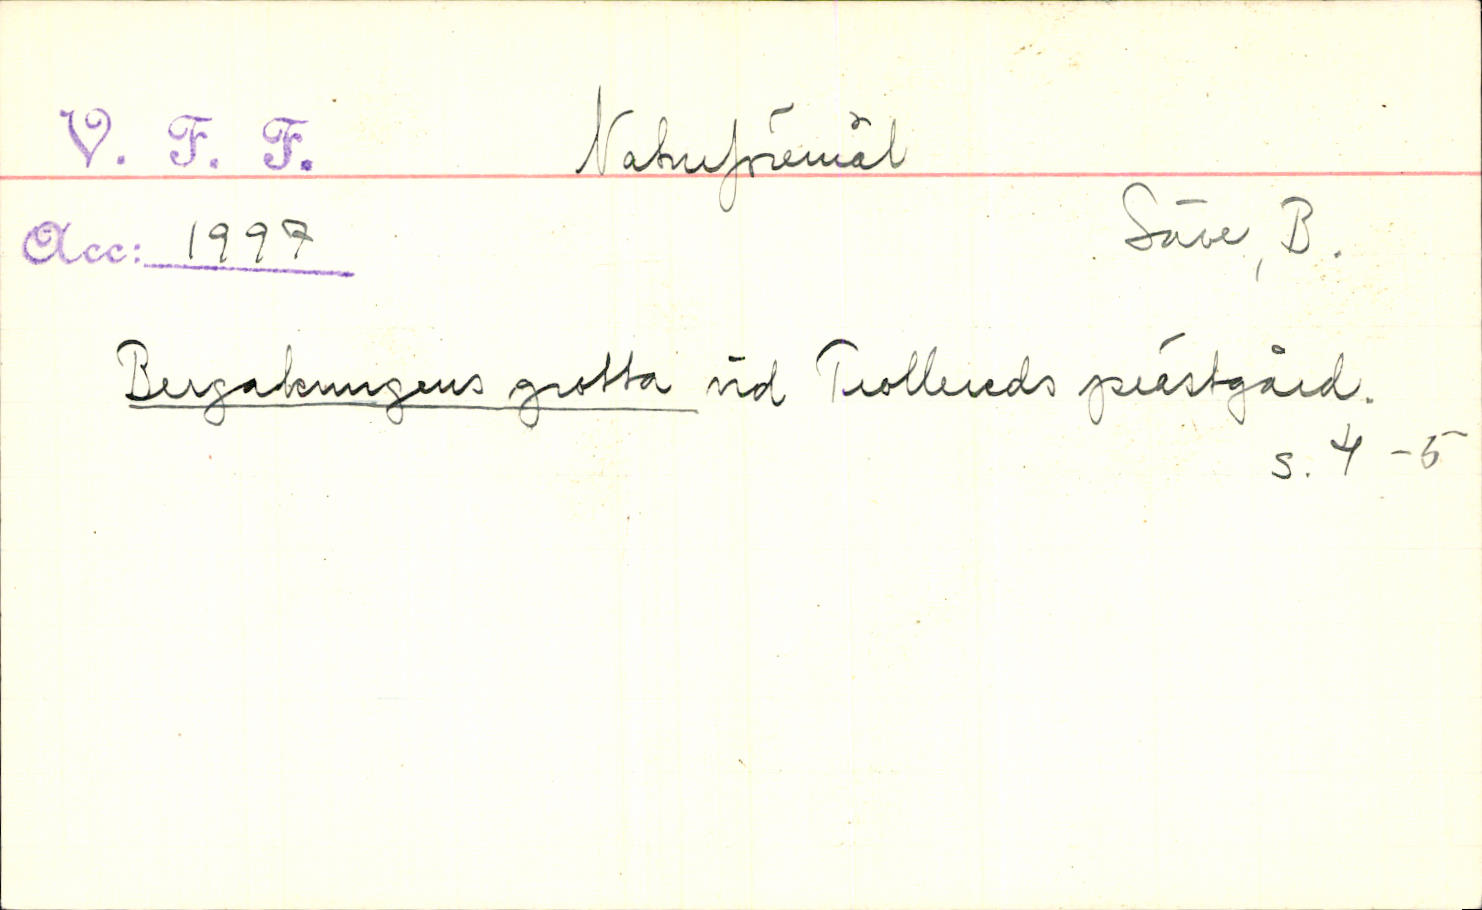 V. F. F. Naturföremål
Acc: 1997 Säve, B.
Bergakungens grotta vid Trollereds prästgård.
s. 4-5